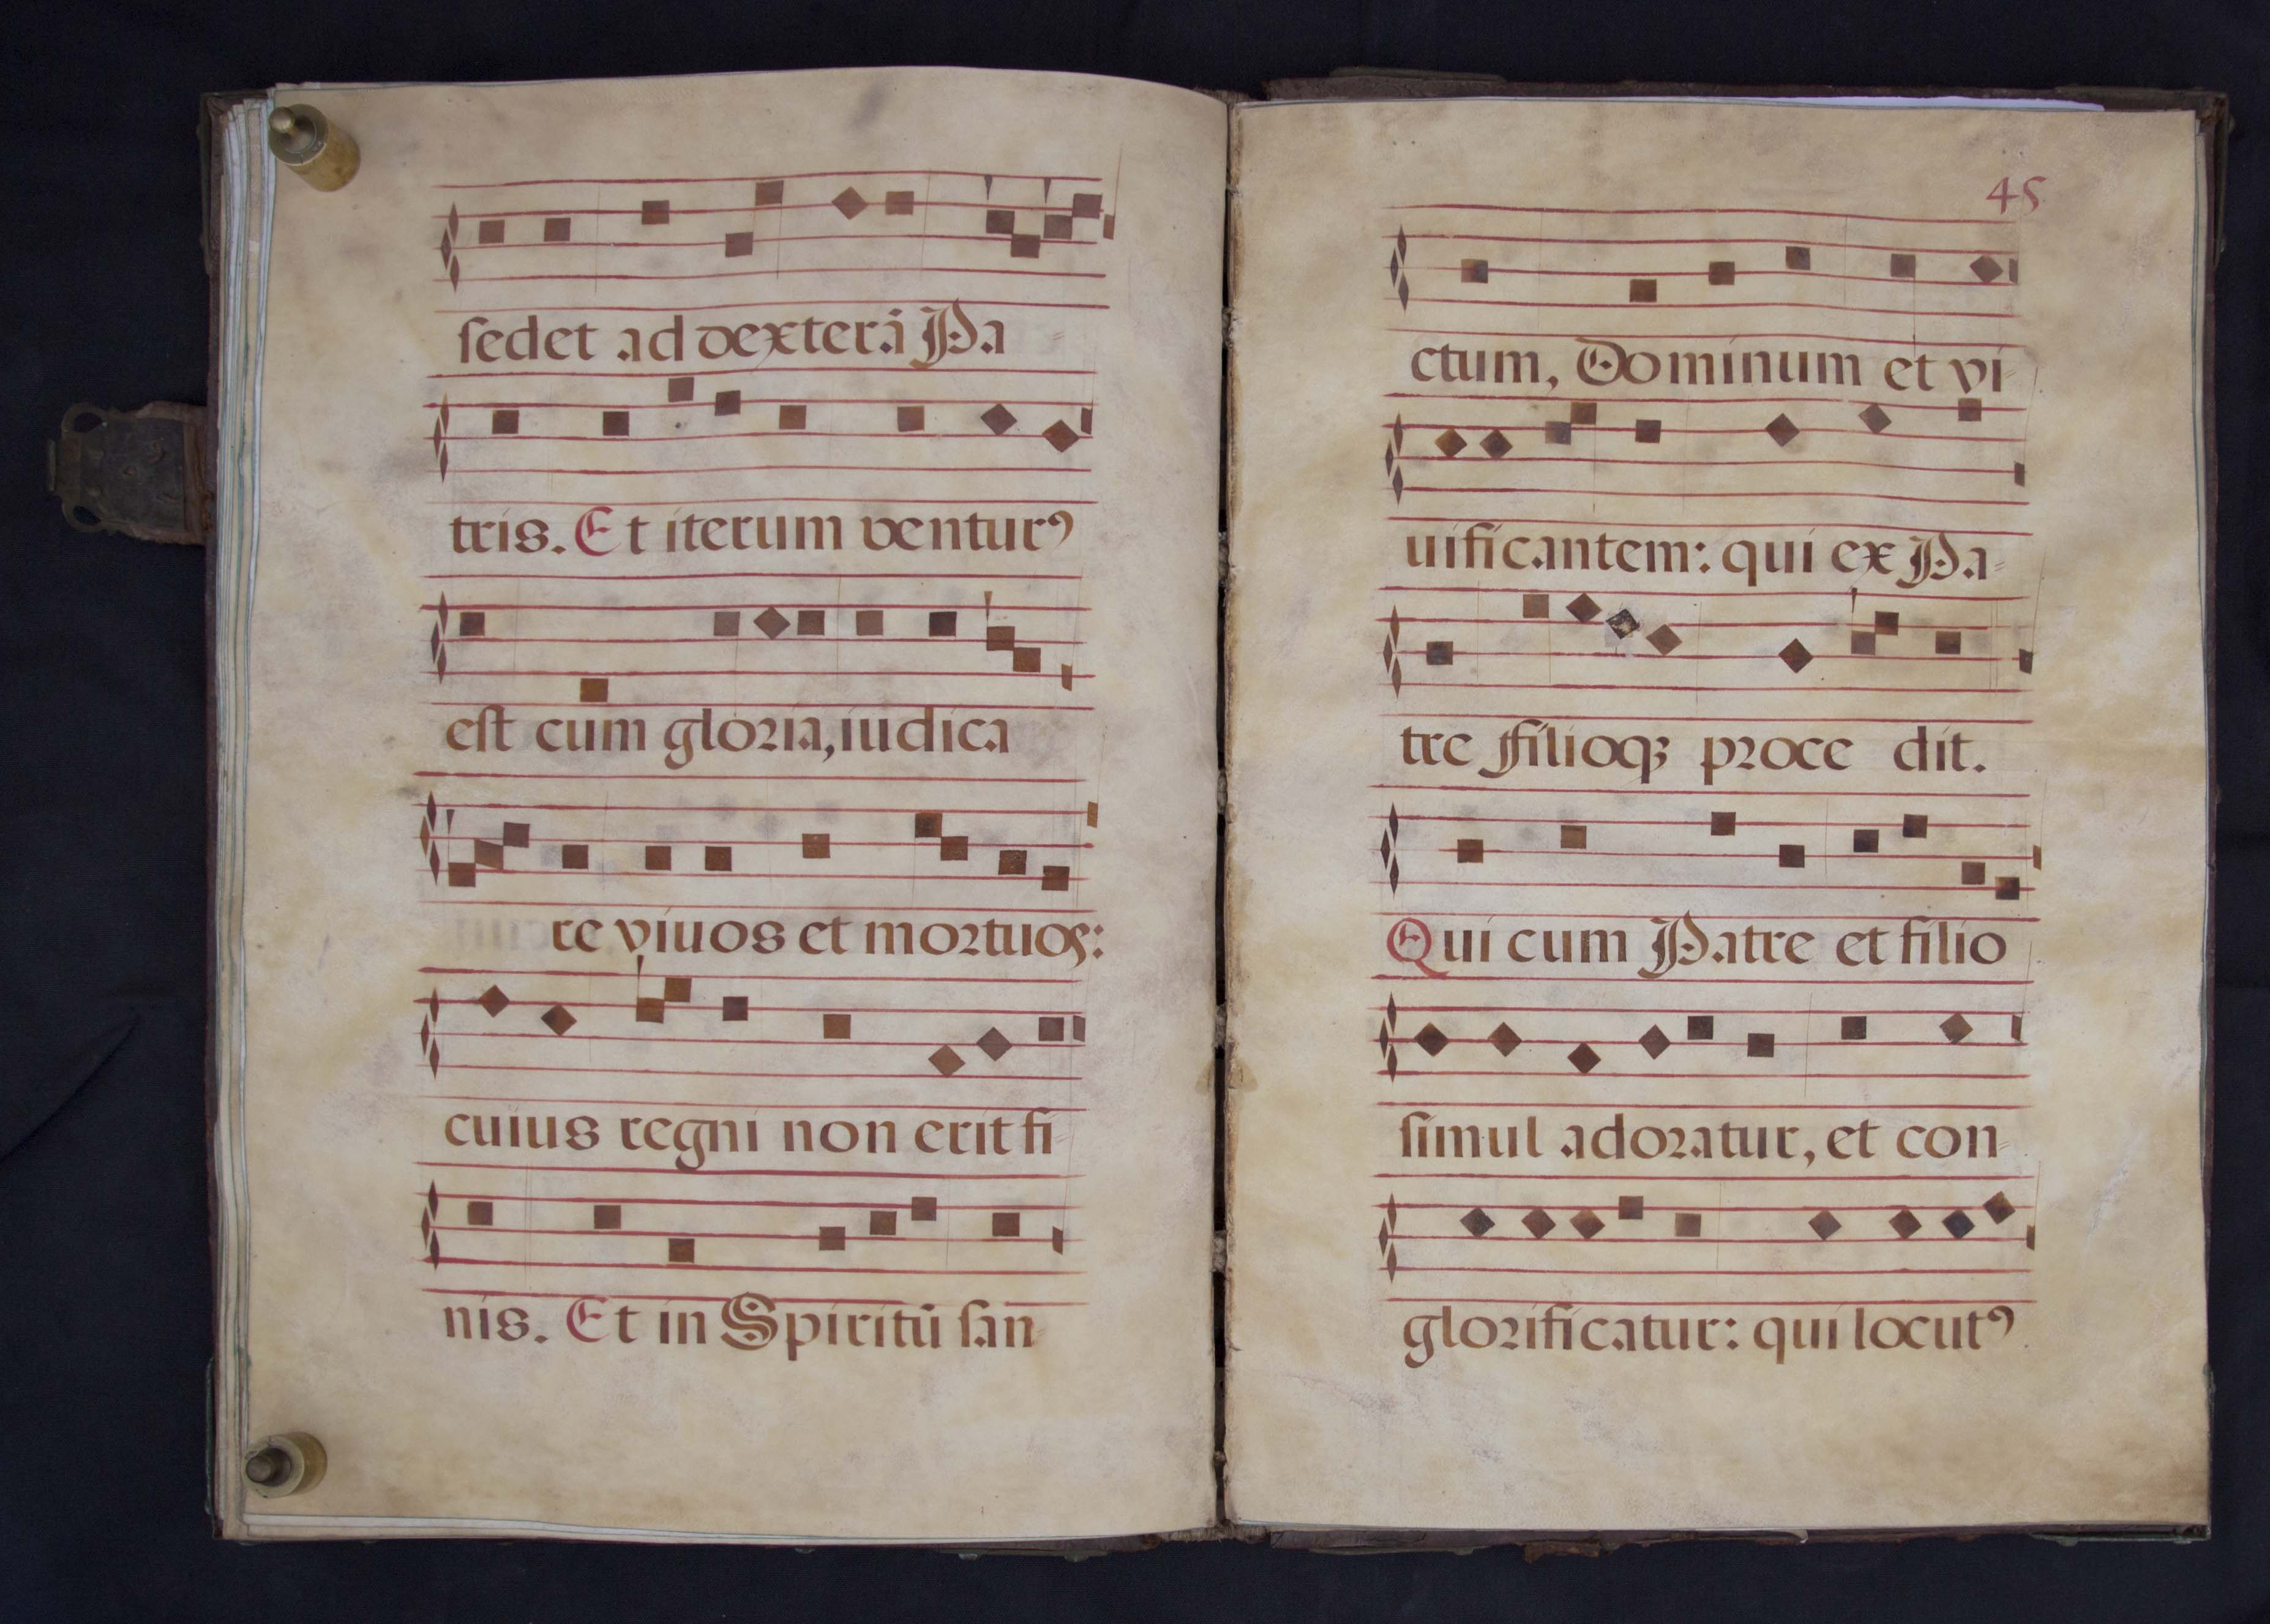 sedet ad dexterã Pa
tris. Et iterum ventur⁹
est cum gloria, iudica
re viuos et mortuos:
cuius regni non erit fi-
nis. Et in Spiritũ san-
45
ctum, Dominum et vi-
uificantem: qui ex Pa-
tre filioqꝫ proce dit.
Qui cum Patre et filio
simul adoratur, et con-
glorificatur: qui locut⁹